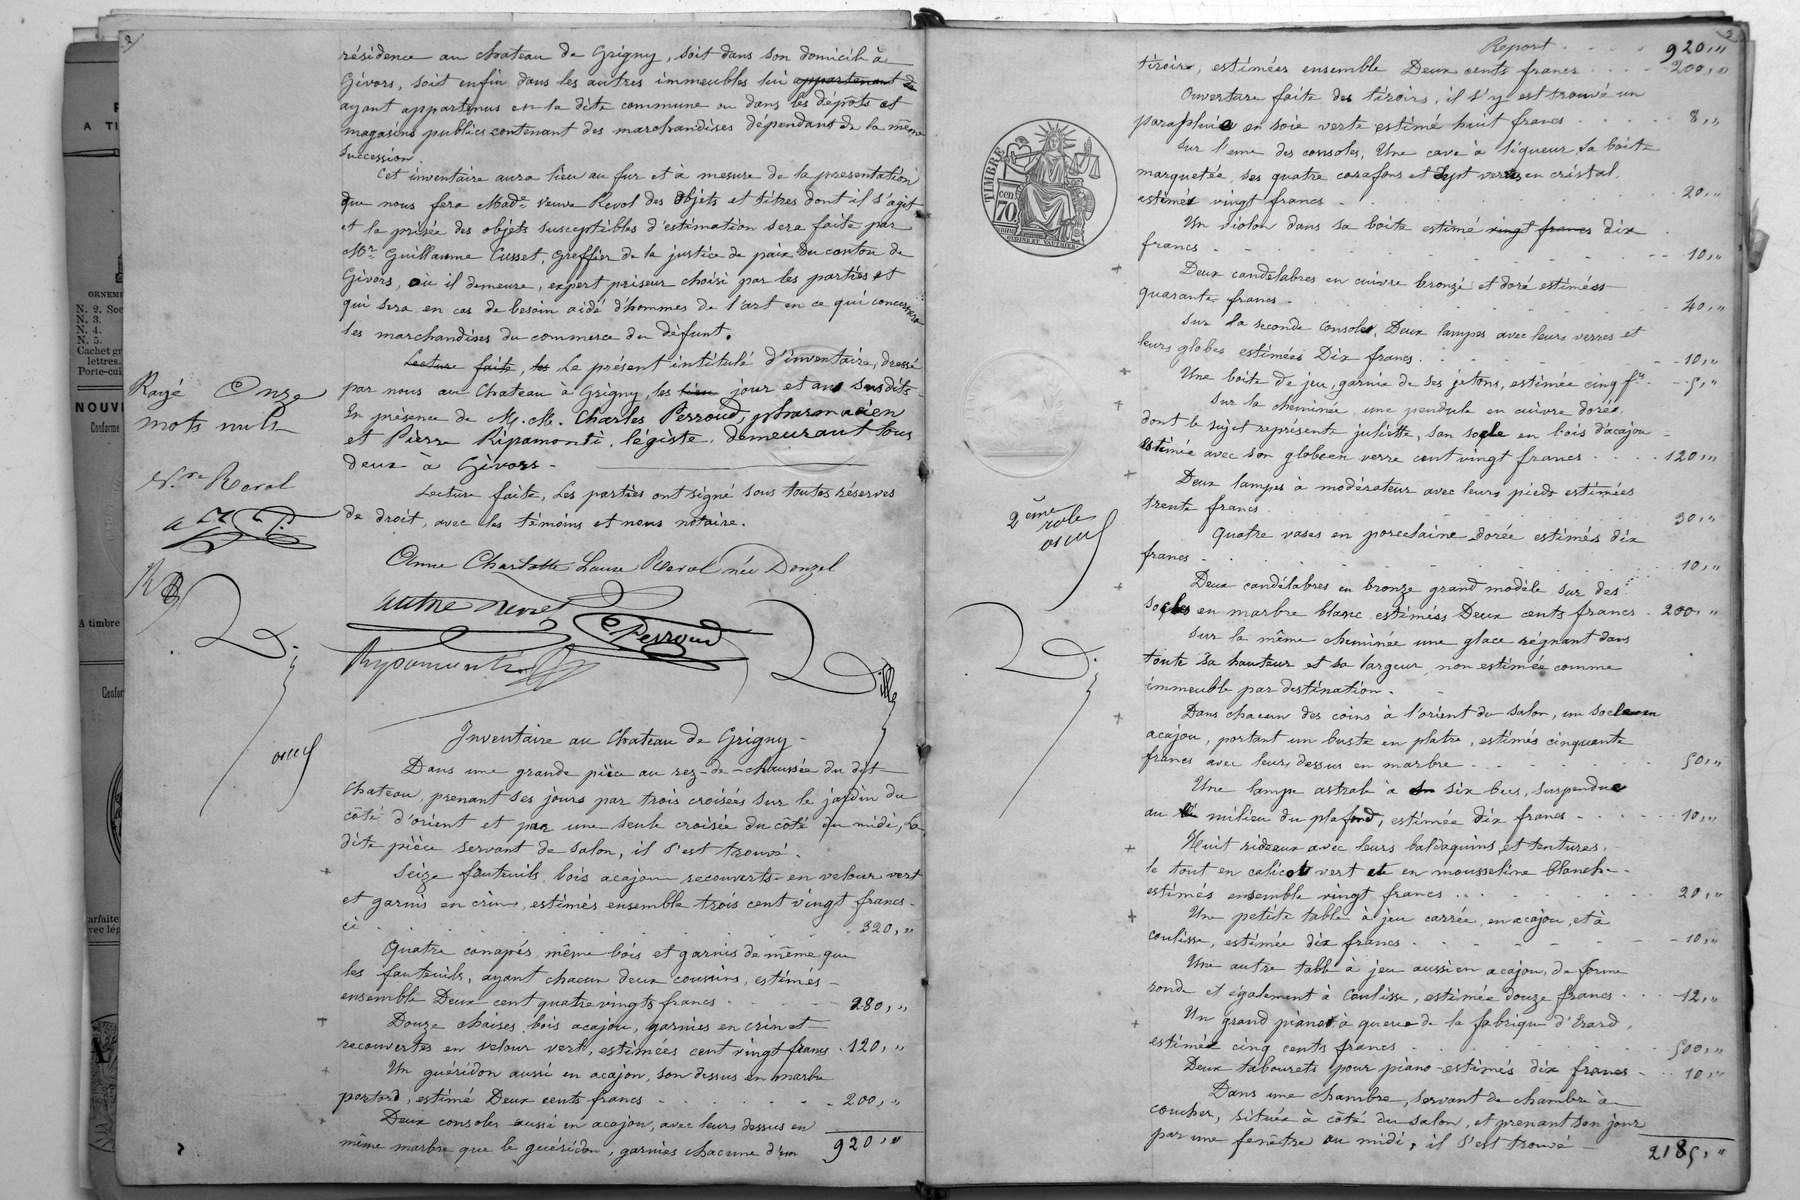 résidence au chateau de Grigny, soit dans son domicile à
Givors, soit enfin dans les autres immeubles lui appartenant de
ayant appartenus en la dite commune ou dans les dépôts et
magasins publics contenant des marchandises dépendant de la même
succession.
Cet inventaire aura lieu au fur et à mesure de la présentation
que nous fera Made veuve Revol des objets et titres dont il s'agit
et la prisée des objets susceptibles d'estimation sera faite par
Mr Guillaume Cusset, Greffier de la justice de paix du canton de
Givors, où il demeure, expert priseur choisi par les parties et
qui sera en cas de besoin aidé d'hommes de l'art en ce qui concernera
les marchandises du commerce du défunt.
Lecture faite, les Le présent intitulé d'inventaire, dressé
par nous au Chateau à Grigny, les lieu jour et an susdits
En présence de M. M. Charles Perroud, pharmacien
et Pierre Ripamonti, légiste, demeurant tous
deux à Givors.
Lecture faite, Les parties ont signé sous toutes réserves
de droit, avec les témoins et nous notaire.
Rayé Onze
mots nuls
Ve Revol
Anne Charlotte Laure Revol née Donzel
C Perroud
Ripamonti
Inventaire au Chateau de Grigny.
Dans une grande pièce au rez-de-chaussée du dit
chateau, prenant ses jours par trois croisées sur le jardin du
côté d'orient et par une seule croisée du côté du midi, la
dite pièce servant de salon, il s'est trouvé.
Seize fauteuils bois acajou recouverts en velour vert
et garnis en crin, estimés ensemble trois cent vingt francs
ci . . . 320,"
Quatre canapés, même bois et garnis de même que
les fauteuils, ayant chacun deux coussins, estimés
ensemble Deux cent quatre vingts francs . . . 280,"
Douze chaises bois acajou, garnies en crin et
recouvertes en velour vert, estimées cent vingt francs . 120,"
Un guéridon aussi en acajou, son dessus en marbre
portord, estimé Deux cents francs . . . 200,"
Deux consoles aussi en acajou, avec leurs dessus en
même marbre que le guéridon, garnies chacune d'un
920,"
2
Report . . . 920,"
tiroirs, estimées ensemble Deux cents francs . . . 200,"
Ouverture faite des tiroirs, il s'y est trouvé un
parapluie en soie verte estimé huit francs . . . 8,"
Sur l'une des consoles, Une cave à liqueur sa boite
marquetée, ses quatre carafons et sept verres en cristal,
estimés vingt francs . . . 20,"
Un violon dans sa boite estimé vingt francs dix
francs . . . 10,"
Deux candelabres en cuivre bronzé et doré estimés
quarante francs . . . 40,"
Sur la seconde console, Deux lampes avec leurs verres et
leurs globes estimées Dix francs . . . 10,"
Une boite de jeu, garnie de ses jetons, estimée cinq fs . 5,"
Sur la cheminée, une pendule en cuivre dorée
dont le sujet représente juliette, son socle en bois d'acajou
estimée avec son globe en verre cent vingt francs . . . 120,"
Deux lampes à modérateur avec leurs pieds estimées
trente francs . . . 30,"
Quatre vases en porcelaine dorée estimés dix
francs . . . 10,"
Deux candélabres en bronze grand modèle sur des
socles en marbre blanc estimés Deux cents francs . 200,"
Sur la même cheminée une glace régnant dans
toute sa hauteur et sa largeur, non estimée comme
immeuble par destination.
Dans chacun des coins à l'orient du salon, un socle en
acajou, portant un buste en platre, estimés cinquante
francs avec leurs dessus en marbre . . . 50,"
Une lampe astrale à six becs, suspendue
au milieu du plafond, estimée dix francs . . . 10,"
Huit rideaux avec leurs baldaquins et tentures,
le tout en calicot vert et en mousseline blanche
estimés ensemble vingt francs . . . 20,"
Une petite table à jeu carrée, en acajou, et à
coulisse, estimée dix francs . . . 10,"
Une autre table à jeu aussi en acajou, de forme
ronde et également à Coulisse, estimée douze francs . . . 12,"
Un grand piano à queue de la fabrique d'Erard,
estimé cinq cents francs . . . 500,"
Deux tabourets pour piano estimés dix francs . . . 10,"
Dans une chambre, servant de chambre à
coucher, située à côté du salon, et prenant son jour
par une fenêtre au midi, il s'est trouvé
2185,"
2ème
role
TIMBRE
70
cen
A timbre
NOUV
N. 2. Soc
N. 3.
N. 4.
N. 5.
Cachet gr
lettres.
Porte-cui
ORNEM